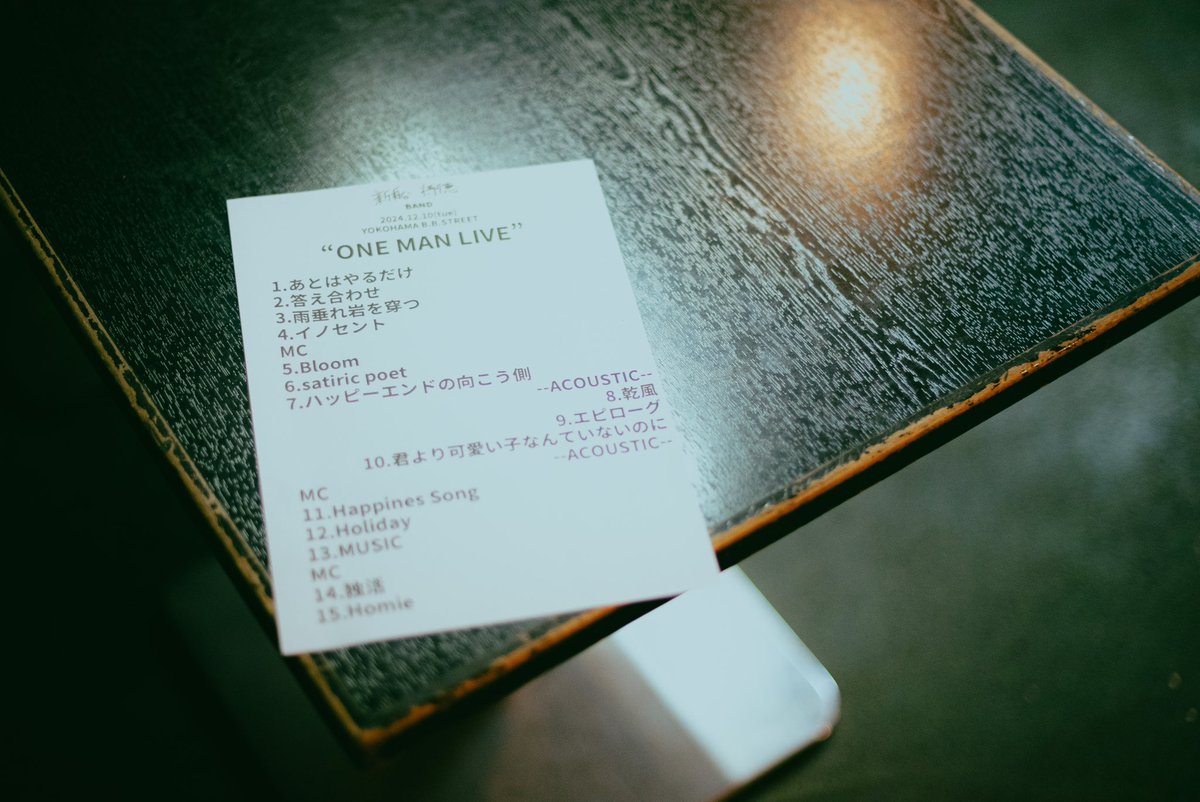 BAND
2024.12.10(tue)
YOKOHAMA B.B.STREET
“ONE MAN LIVE”
1.あとはやるだけ
2.答え合わせ
3.雨垂れ岩を穿つ
4.イノセント
MC
5.Bloom
6.satiric poet
7.ハッピーエンドの向こう側
--ACOUSTIC--
8.乾風
9.エピローグ
10.君より可愛い子なんていないのに
--ACOUSTIC--
MC
11.Happines Song
12.Holiday
13.MUSIC
MC
14.独活
15.Homie